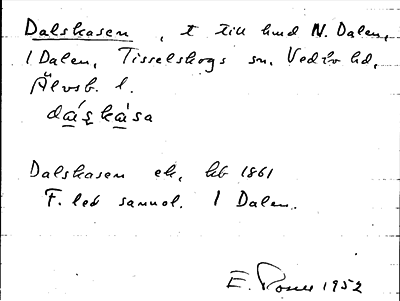 Dalskasen, t till hmd N. Dalen,
1 Dalen, Tisselskogs sn, Vedbo hd,
Älvsb. l.
dáskàsa
Dalskasen ek, kb 1861
F. led samnol. 1 Dalen.
E. 1952